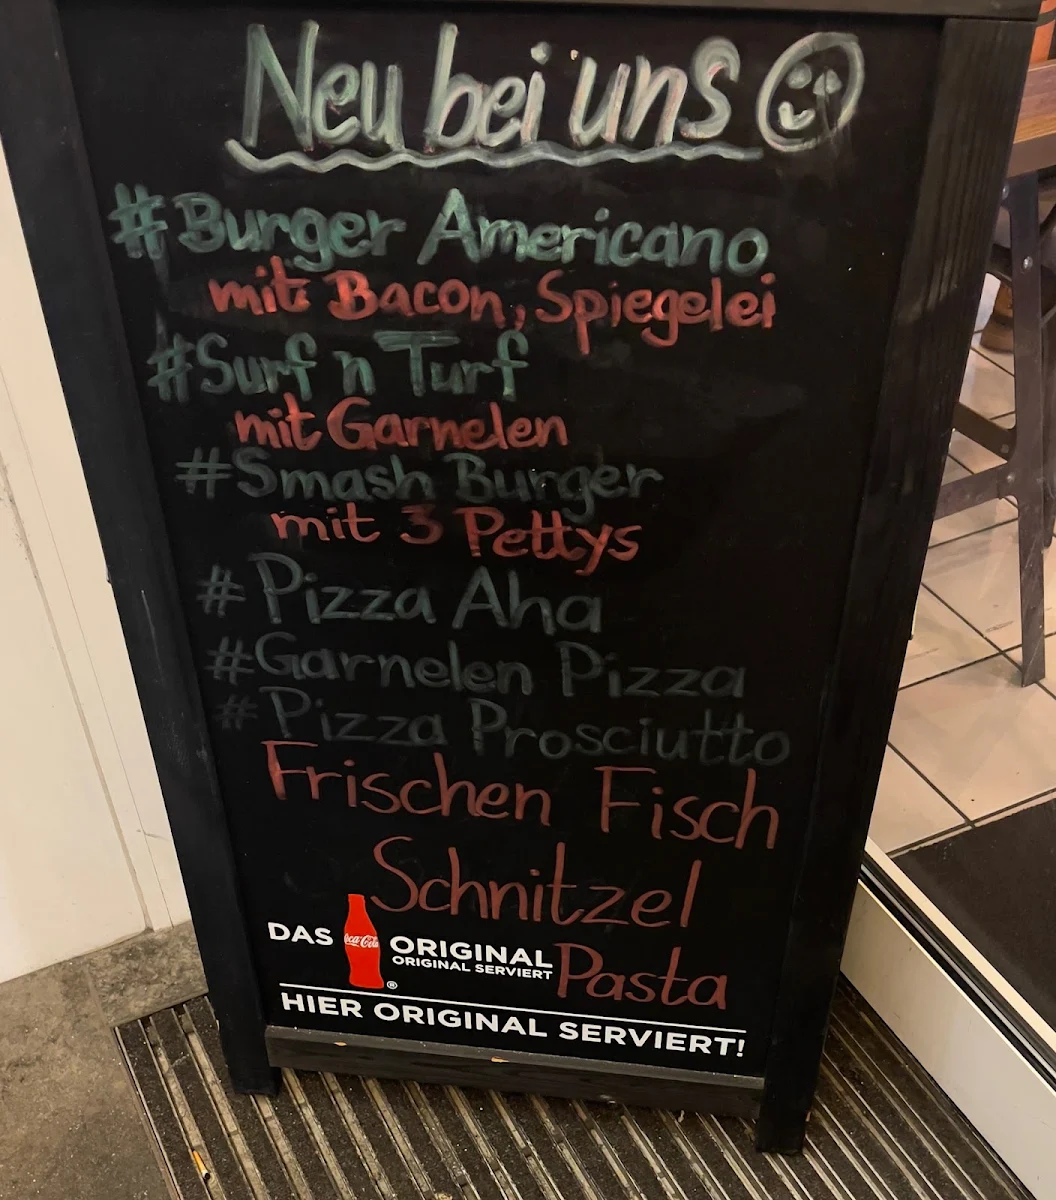 Neu bei uns
#Burger Americano
mit Bacon, Spiegelei
#Surf n Turf
mit Garnelen
#Smash Burger
mit 3 Pettys
#Pizza Aha
#Garnelen Pizza
#Pizza Prosciutto
Frischen Fisch
Schnitzel
Pasta
DAS Coca-Cola ORIGINAL
ORIGINAL SERVIERT
®
HIER ORIGINAL SERVIERT!